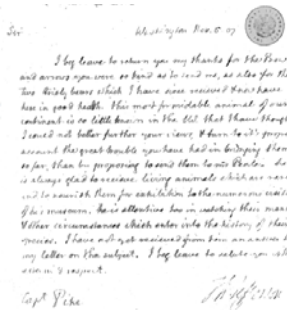 Sir Washington Nov. 5. 07
I beg leave to return you my thanks for the
and arrows you were so kind as to send me, as also for the
two Grisly bears which I have since recieved & now have
here in good health. this most formidable animal of our
continent is so little known in the old that I have thought
I could not better further your views, & turn to it's proper
account the great trouble you have had in bringing them
so far, than by proposing to send them to mr Peale. he
is always glad to receive living animals which are rare
and to nourish them for exhibition to the numerous visitors
of his museum. he is attentive too in watching their manners
& other circumstances which enter into the history of their
species. I have not yet recieved from him an answer to
my letter on the subject. I beg leave to salute you with
esteem & respect.
Th: Jefferson
Capt. Pike